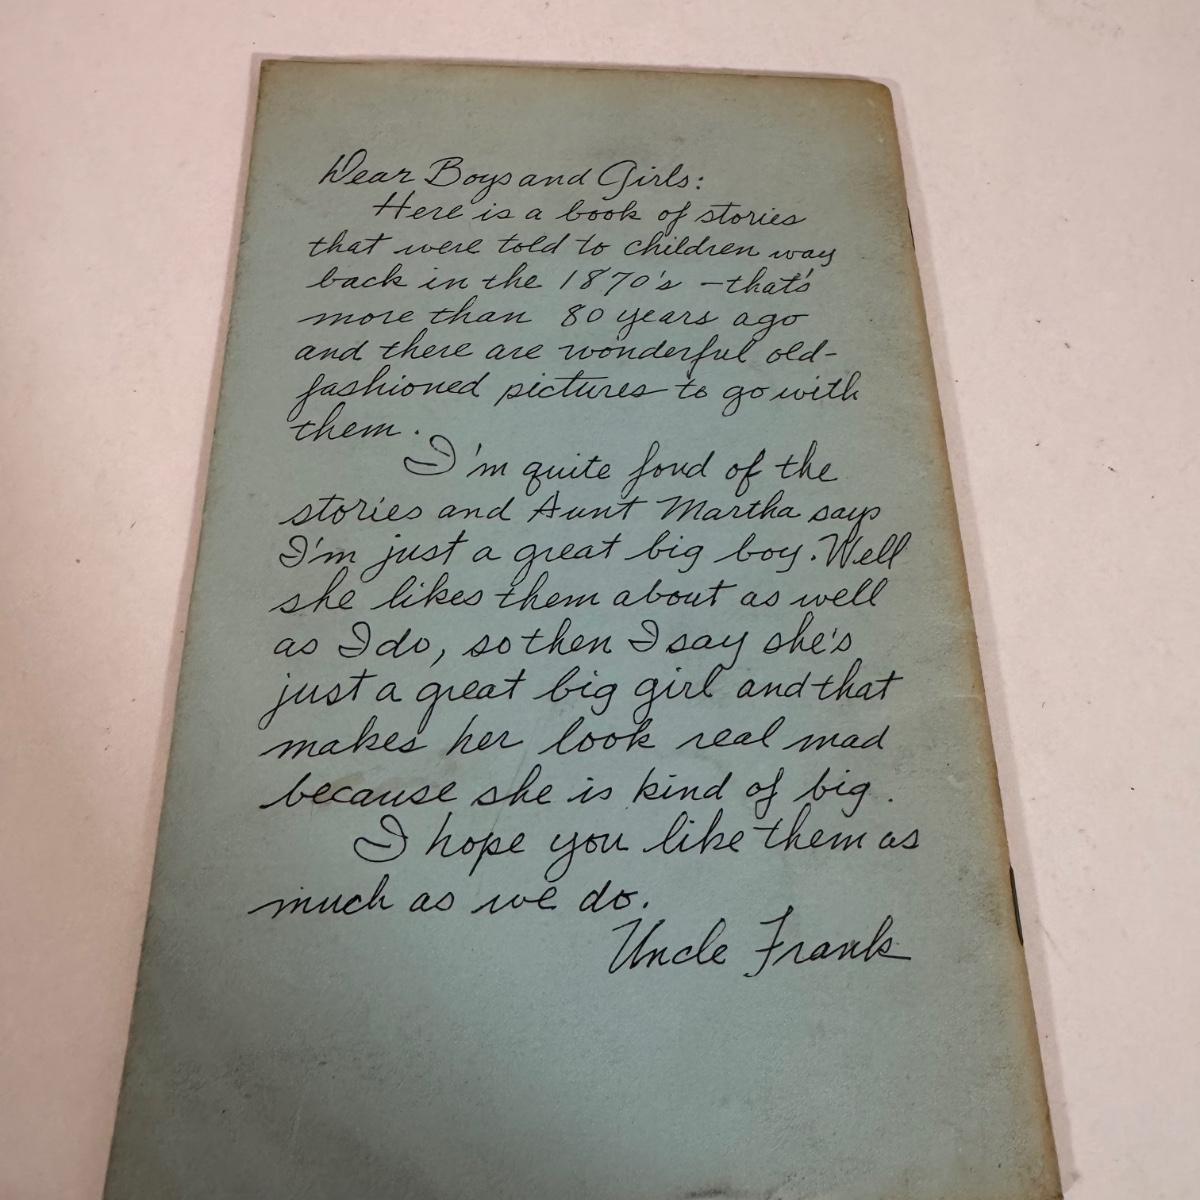 Dear Boys and Girls:
Here is a book of stories
that were told to children way
back in the 1870's - that's
more than 80 years ago
and there are wonderful old-
fashioned pictures to go with
them.
I'm quite fond of the
stories and Aunt Martha says
I'm just a great big boy. Well
she likes them about as well
as I do, so then I say she's
just a great big girl and that
makes her look real mad
because she is kind of big.
I hope you like them as
much as we do.
Uncle Frank